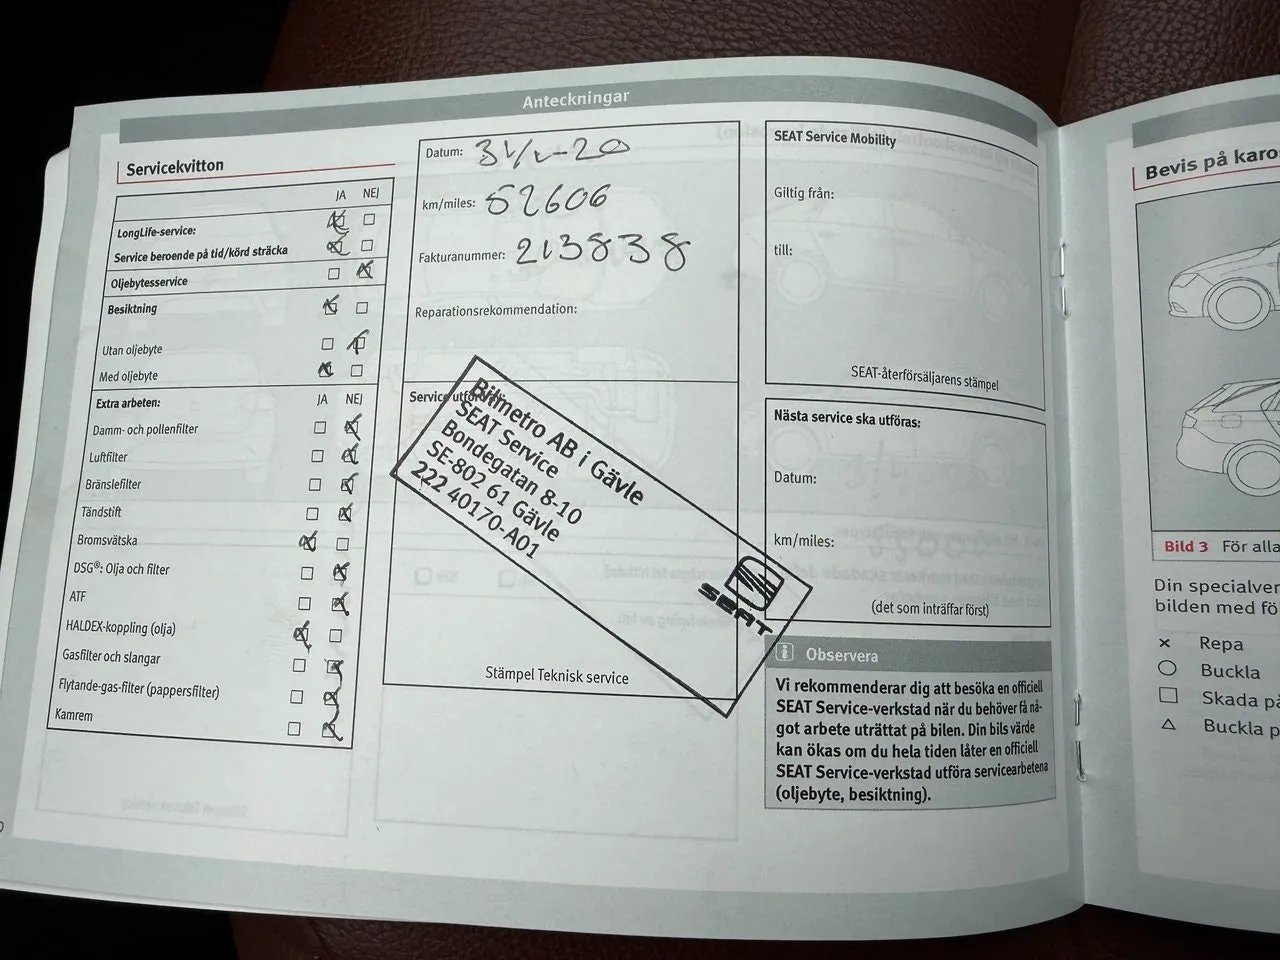 Anteckningar
Servicekvitton
JA NEJ
LongLife-service:
Service beroende på tid/körd sträcka
Oljebytesservice
Besiktning
Utan oljebyte
Med oljebyte
Extra arbeten: JA NEJ
Damm- och pollenfilter
Luftfilter
Bränslefilter
Tändstift
Bromsvätska
DSG®: Olja och filter
ATF
HALDEX-koppling (olja)
Gasfilter och slangar
Flytande-gas-filter (pappersfilter)
Kamrem
Datum:
km/miles: 52606
Fakturanummer: 213838
Reparationsrekommendation:
Service utförd
Bilmetro AB i Gävle
SEAT Service
Bondegatan 8-10
SE-802 61 Gävle
222 40170-A01
SEAT
Stämpel Teknisk service
SEAT Service Mobility
Giltig från:
till:
SEAT-återförsäljarens stämpel
Nästa service ska utföras:
Datum:
km/miles:
(det som inträffar först)
i Observera
Vi rekommenderar dig att besöka en officiell
SEAT Service-verkstad när du behöver få nå-
got arbete uträttat på bilen. Din bils värde
kan ökas om du hela tiden låter en officiell
SEAT Service-verkstad utföra servicearbetena
(oljebyte, besiktning).
Bevis på karos
Bild 3 För alla
Din specialver
bilden med fö
Repa
Buckla
Skada på
Buckla p